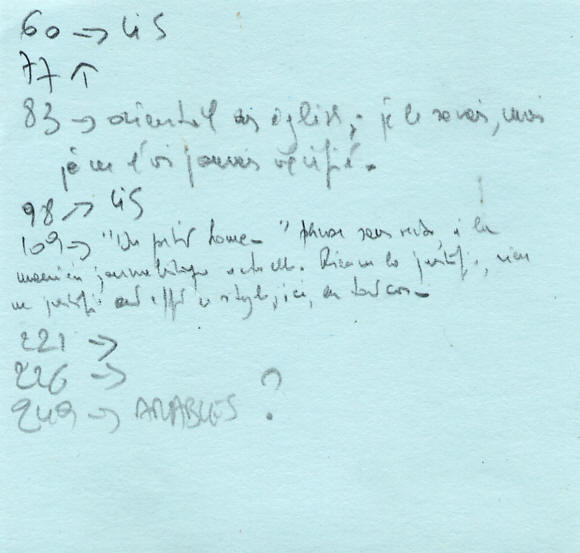 60 → LIS
77 ↑
83 → orientat° des églises ; je le savais, mais
je ne l'ai jamais vérifié.
98 → LIS
109 → "Un petit homme." phrase sans verbe, à la
manière journalistique actuelle. Rien ne le justifie, rien
ne justifie cet effet de style, ici, en tout cas.
221 →
226 →
249 → ARABLES ?